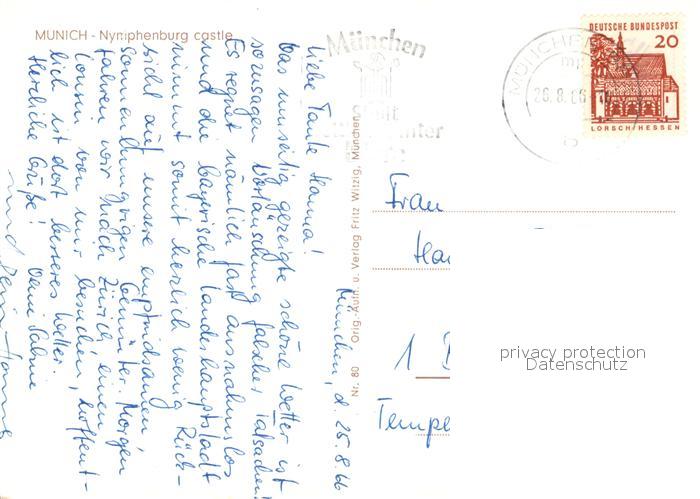 MUNICH - Nymphenburg castle
München
Stadt
MÜNCHEN
26.8.66
DEUTSCHE BUNDESPOST
20
LORSCH/HESSEN
München, d. 25.8.66
Liebe Tante Hanna!
Das umseitig gezeigte schöne Wetter ist
sozusagen Vortäuschung falscher Tatsachen!
Es regnet nämlich fast ausnahmslos
und die bayerische Landeshauptstadt
nimmt somit herzlich wenig Rück-
sicht auf unsere empfindsamen
sonnenhungrigen Gemüter. Morgen
fahren wir nach Zürich einen
von mir besuchen, hoffent-
lich ist dort besseres Wetter.
Herzliche Grüße! Deine Sabine
und Dein
Nr. 80 Orig.-Aufn. u. Verlag Fritz Witzig, München
Frau
Ha
1
Tempe
privacy protection
Datenschutz